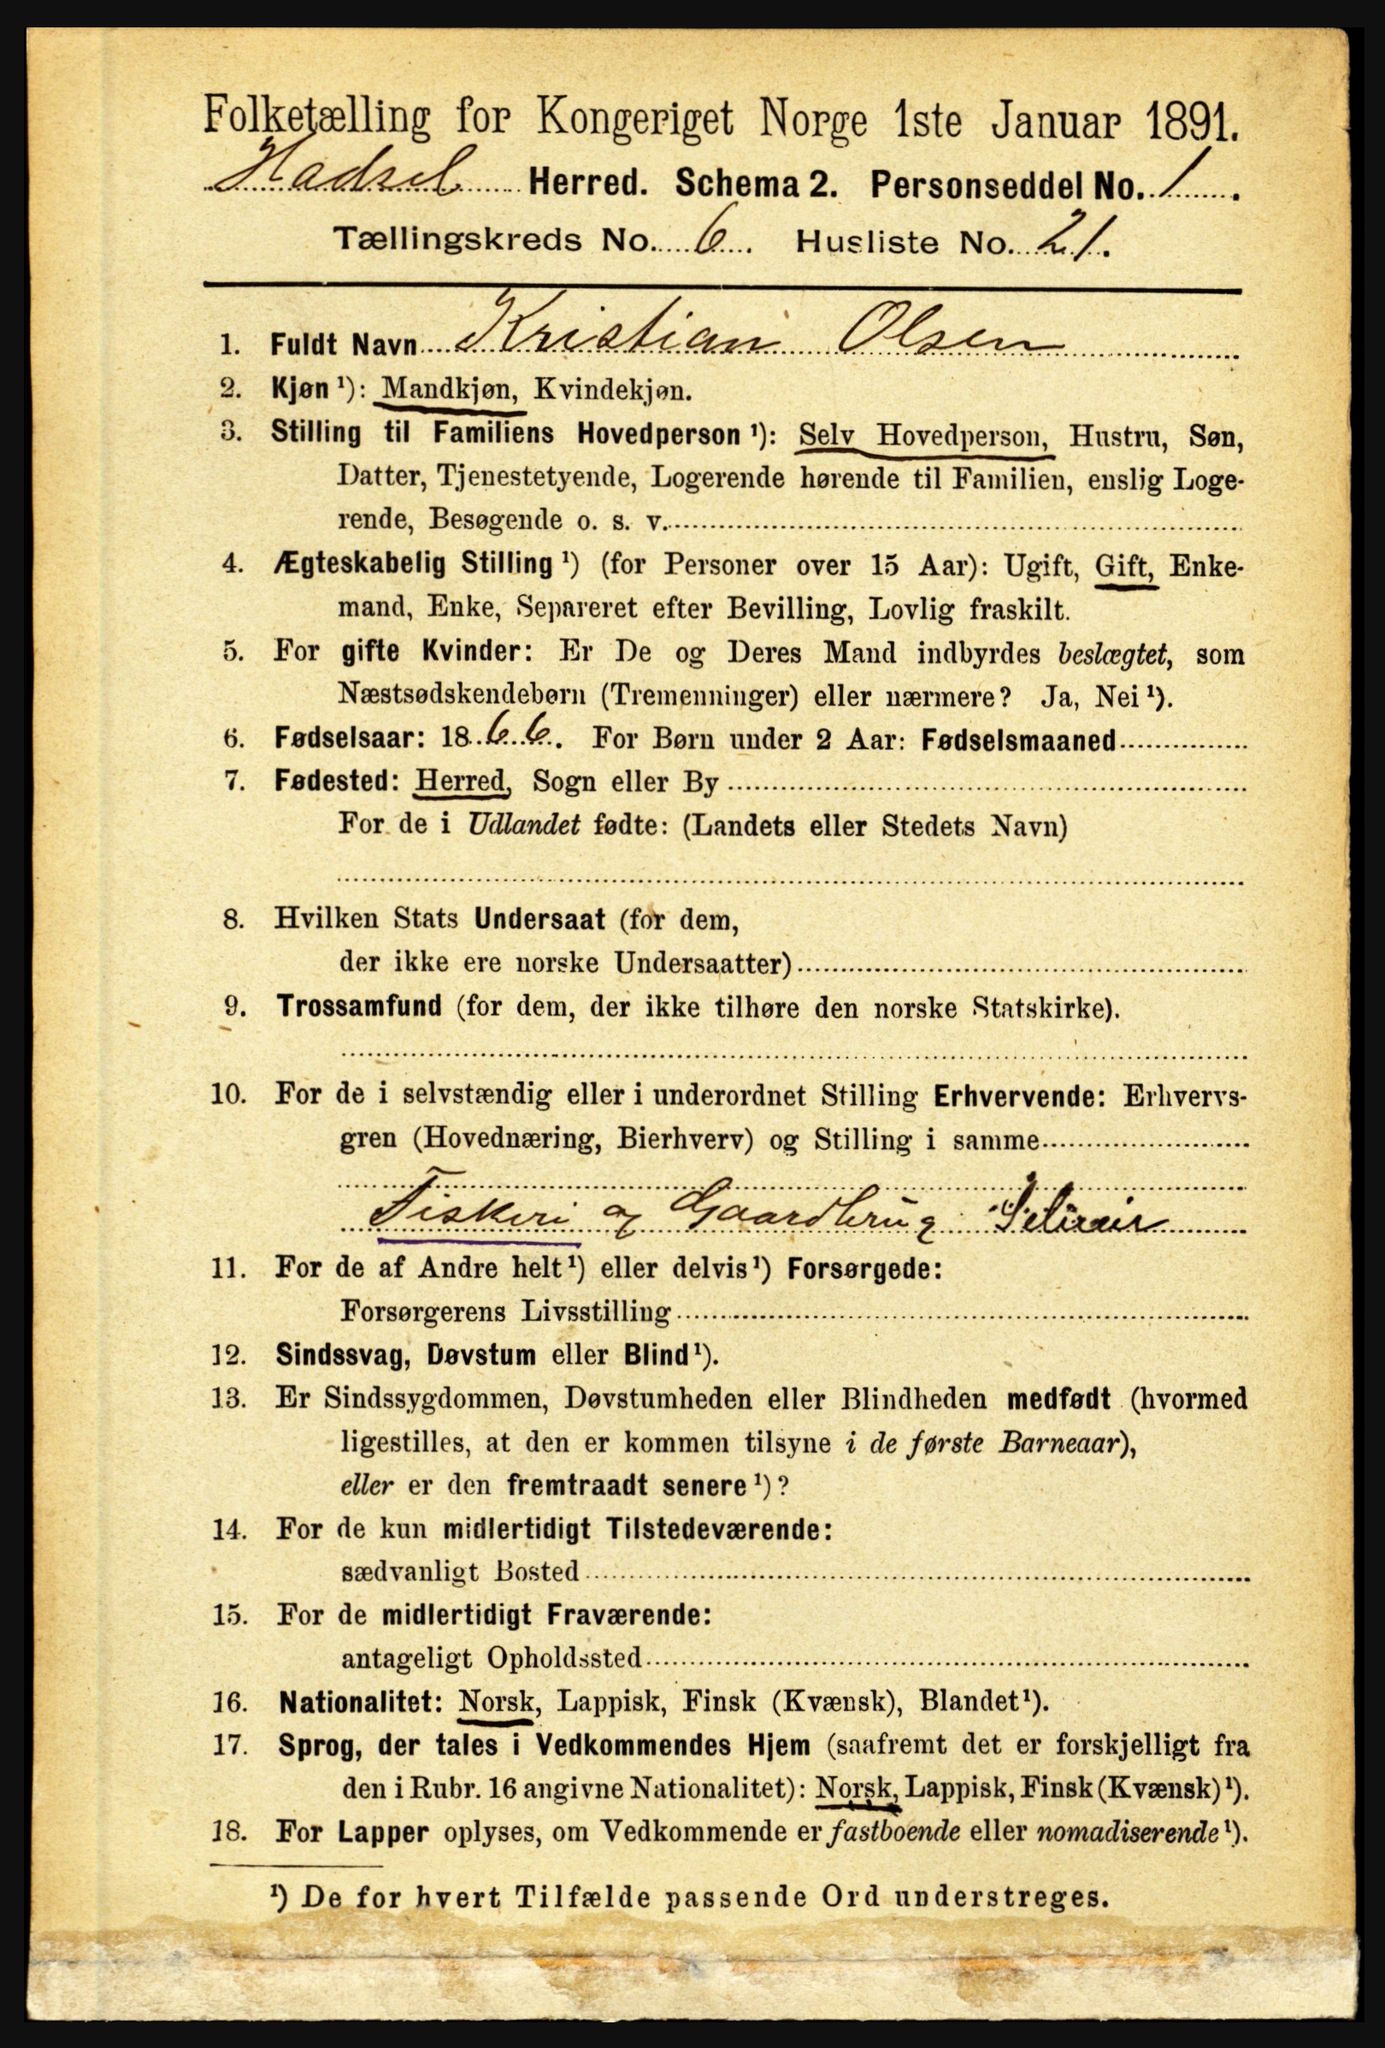 Folketælling for Kongeriget Norge 1ste Januar 1891.
Hadsel Herred. Schema 2. Personseddel No. 1.
Tællingskreds No. 6. Husliste No. 21.
1. Fuldt Navn Kristian Olsen
2. Kjøn ¹): Mandkjøn, Kvindekjøn.
3. Stilling til Familiens Hovedperson ¹): Selv Hovedperson, Hustru, Søn,
Datter, Tjenestetyende, Logerende hørende til Familien, enslig Loge-
rende, Besøgende o. s. v.
4. Ægteskabelig Stilling ¹) (for Personer over 15 Aar): Ugift, Gift, Enke-
mand, Enke, Separeret efter Bevilling, Lovlig fraskilt.
5. For gifte Kvinder: Er De og Deres Mand indbyrdes beslægtet, som
Næstsødskendebørn (Tremenninger) eller nærmere? Ja, Nei ¹).
6. Fødselsaar: 1866. For Børn under 2 Aar: Fødselsmaaned
7. Fødested: Herred, Sogn eller By
For de i Udlandet fødte: (Landets eller Stedets Navn)
8. Hvilken Stats Undersaat (for dem,
der ikke ere norske Undersaatter)
9. Trossamfund (for dem, der ikke tilhøre den norske Statskirke).
10. For de i selvstændig eller i underordnet Stilling Erhvervende: Erhvervs-
gren (Hovednæring, Bierhverv) og Stilling i samme
Fiskeri og Gaardbrug
11. For de af Andre helt ¹) eller delvis ¹) Forsørgede:
Forsørgerens Livsstilling
12. Sindssvag, Døvstum eller Blind ¹).
13. Er Sindssygdommen, Døvstumheden eller Blindheden medfødt (hvormed
ligestilles, at den er kommen tilsyne i de første Barneaar),
eller er den fremtraadt senere ¹)?
14. For de kun midlertidigt Tilstedeværende:
sædvanligt Bosted
15. For de midlertidigt Fraværende:
antageligt Opholdssted
16. Nationalitet: Norsk, Lappisk, Finsk (Kvænsk), Blandet ¹).
17. Sprog, der tales i Vedkommendes Hjem (saafremt det er forskjelligt fra
den i Rubr. 16 angivne Nationalitet): Norsk, Lappisk, Finsk (Kvænsk) ¹).
18. For Lapper oplyses, om Vedkommende er fastboende eller nomadiserende ¹).
¹) De for hvert Tilfælde passende Ord understreges.